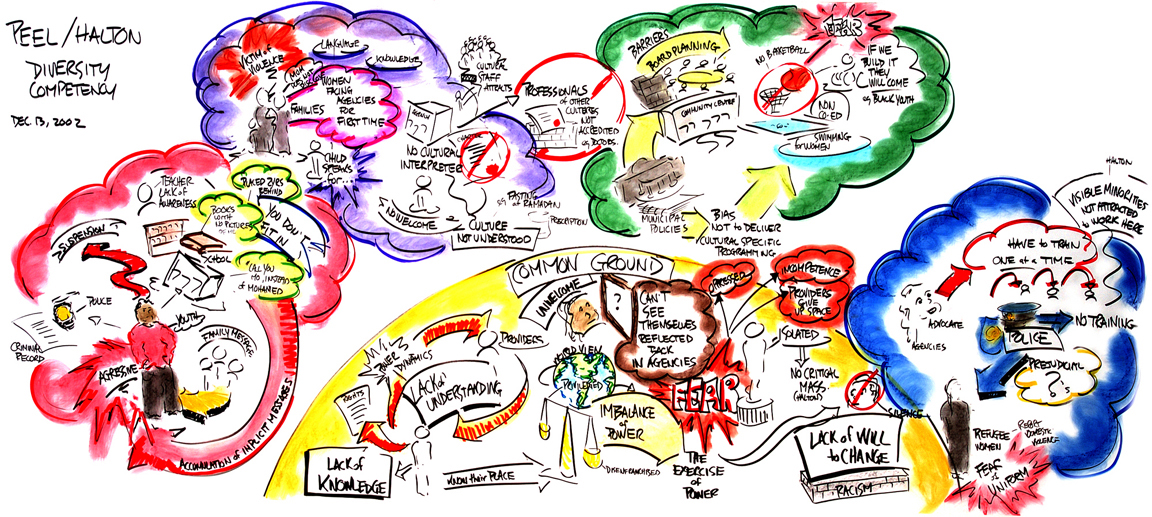 PEEL / HALTON
DIVERSITY
COMPETENCY
DEC. 13, 2002
VICTIM of
VIOLENCE
LANGUAGE
KNOWLEDGE
WOMEN
FACING
AGENCIES
FOR
FIRST TIME
FAMILIES
CHILD
SPEAKS
for...
CULTURAL
STAFF
ATTRACTS
AGENCY
???
NO CULTURAL
INTERPRETER
NO WELCOME
FASTING
eg RAMADAN
CULTURE
NOT UNDERSTOOD
PROFESSIONALS
of OTHER
CULTURES
NOT
ACCREDITED
eg. DOCTORS.
BARRIERS
BOARD PLANNING
COMMUNITY CENTER
???
MUNICIPAL
POLICIES
BIAS
NOT to DELIVER
CULTURAL SPECIFIC
PROGRAMMING
NO BASKETBALL
FEAR
IF WE
BUILD IT
THEY
WILL COME
eg BLACK YOUTH
NON
CO-ED
SWIMMING
FOR WOMEN
TEACHER
LACK of
AWARENESS
SUSPENSION
PLACED 2YRS
BEHIND
BOOKS
WITH
NO PICTURES
of ME
YOU DON'T
FIT IN
CALL YOU
MO, INSTEAD
of MOHAMED
SCHOOL
???
POLICE
YOUTH
CRIMINAL
RECORD
AGRESSIVE
FAMILY MESSAGE
ACCUMULATION of IMPLICIT MESSAGES
COMMON GROUND
UNWELCOME
?
CAN'T
SEE
THEMSELVES
REFLECTED
BACK
IN AGENCIES
OPRESSED
INCOMPETENCE
PROVIDERS
GIVE
UP SPACE
ISOLATED
NO CRITICAL
MASS.
(HALTON)
POWER
DYNAMICS
PROVIDERS
LACK of
UNDERSTANDING
RIGHTS
WORLD VIEW
PRIVILEGED
IMBALANCE
of
POWER
DISENFRANCHISED
FEAR
THE
EXERCISE
of
POWER
LACK of
KNOWLEDGE
KNOW their PLACE
LACK of WILL
to CHANGE
RACISM
SILENCE
HALTON
VISIBLE MINORITIES
NOT ATTRACTED
to WORK HERE
HAVE to TRAIN
ONE at a TIME
ADVOCATE
AGENCIES
POLICE
NO TRAINING
PREJUDICIAL
?s
REFUGEE
WOMEN
REPORT
DOMESTIC
VIOLENCE
FEAR
of
UNIFORM